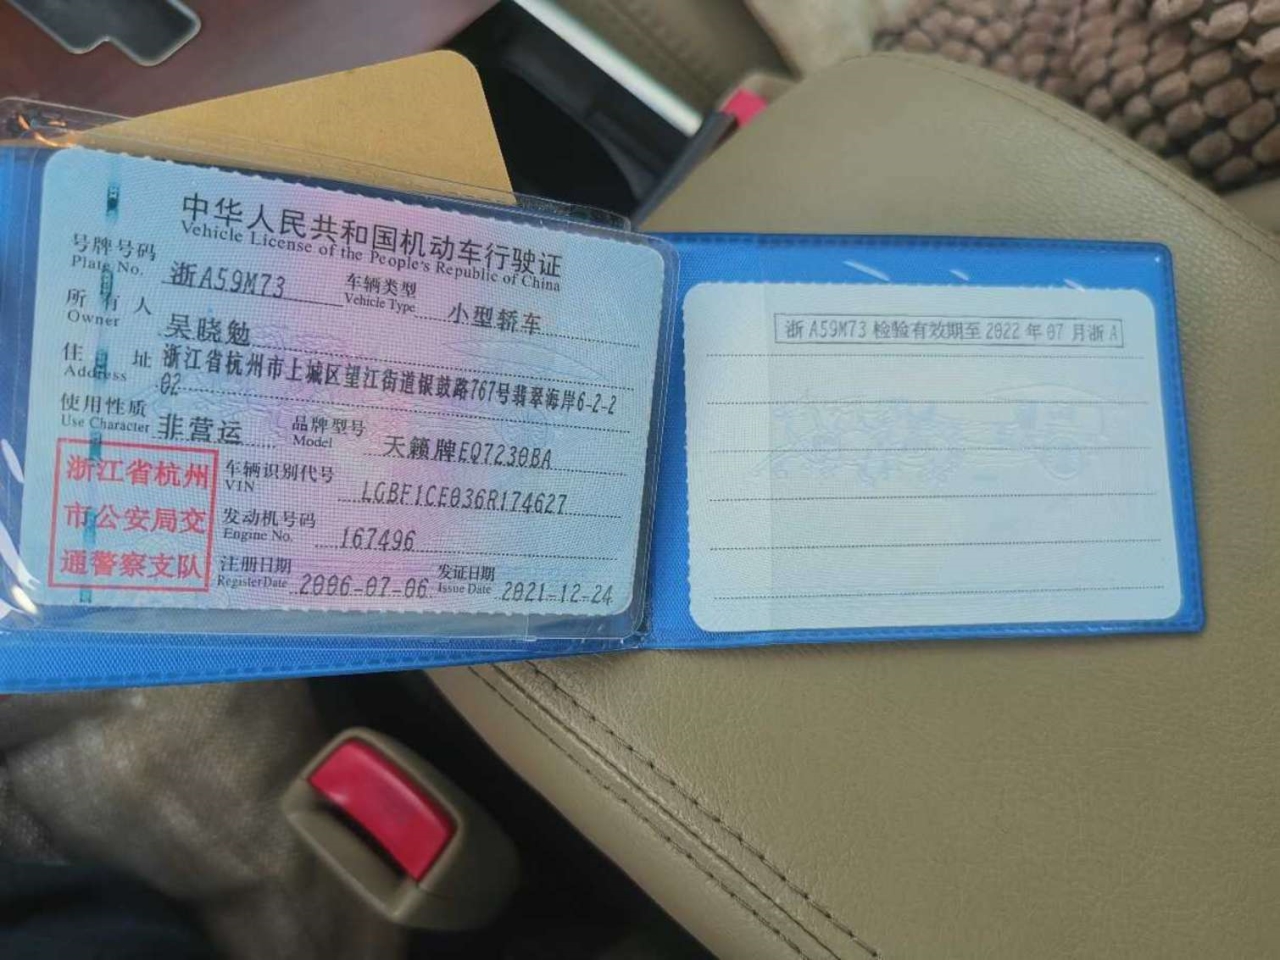 中华人民共和国机动车行驶证
Vehicle License of the People's Republic of China
号牌号码 浙A59M73 车辆类型 小型轿车
Plate No. Vehicle Type
所有人 吴晓勉
Owner
住址 浙江省杭州市上城区望江街道银鼓路767号翡翠海岸6-2-2
Address 02
使用性质 非营运 品牌型号 天籁牌EQ7230BA
Use Character Model
浙江省杭州
市公安局交
通警察支队
车辆识别代号 LGBF1CE036R174627
VIN
发动机号码 167496
Engine No.
注册日期 2006-07-06 发证日期 2021-12-24
Register Date Issue Date
浙A59M73 检验有效期至 2022 年 07 月浙 A